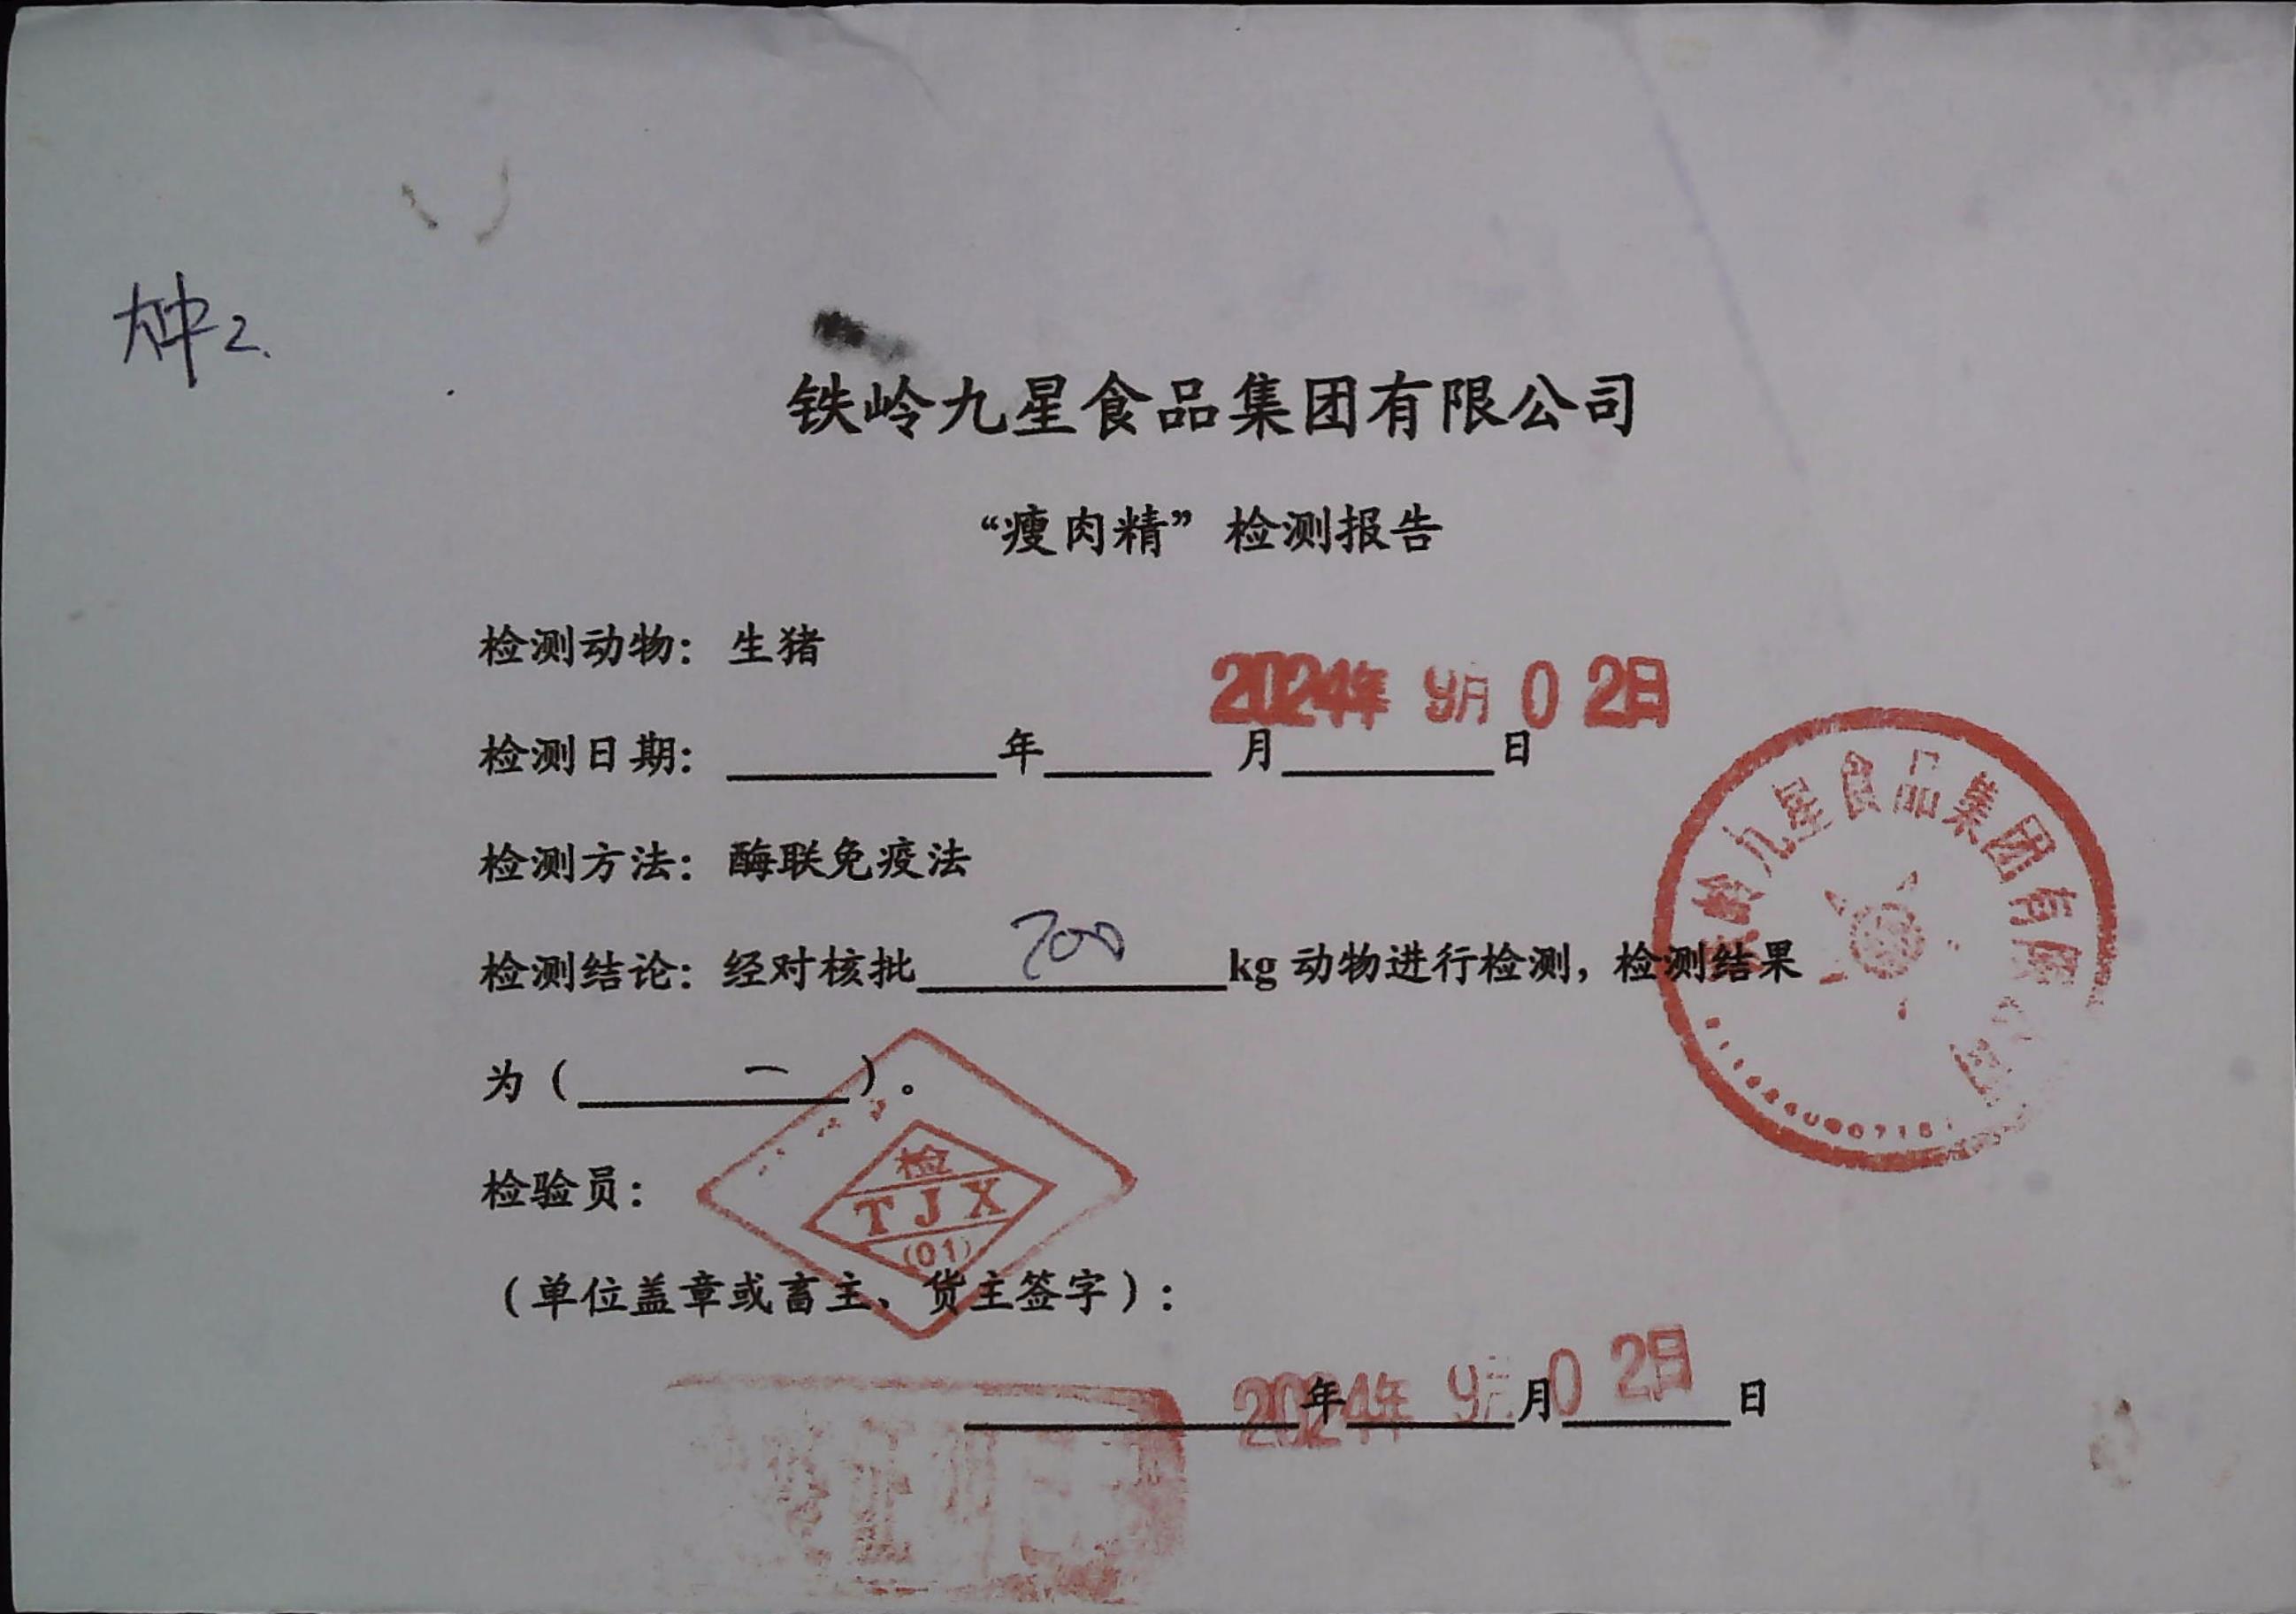 铁岭九星食品集团有限公司
“瘦肉精”检测报告
检测动物：生猪
2024年 9月 02日
检测日期：________年_____月______日
检测方法：酶联免疫法
检测结论：经对核批 700 kg动物进行检测，检测结果
为（ 一 ）。
检验员：
检
TJX
(01)
（单位盖章或畜主、货主签字）：
____年____月____日
2024年 9月 02日
岭九星食品集团有限